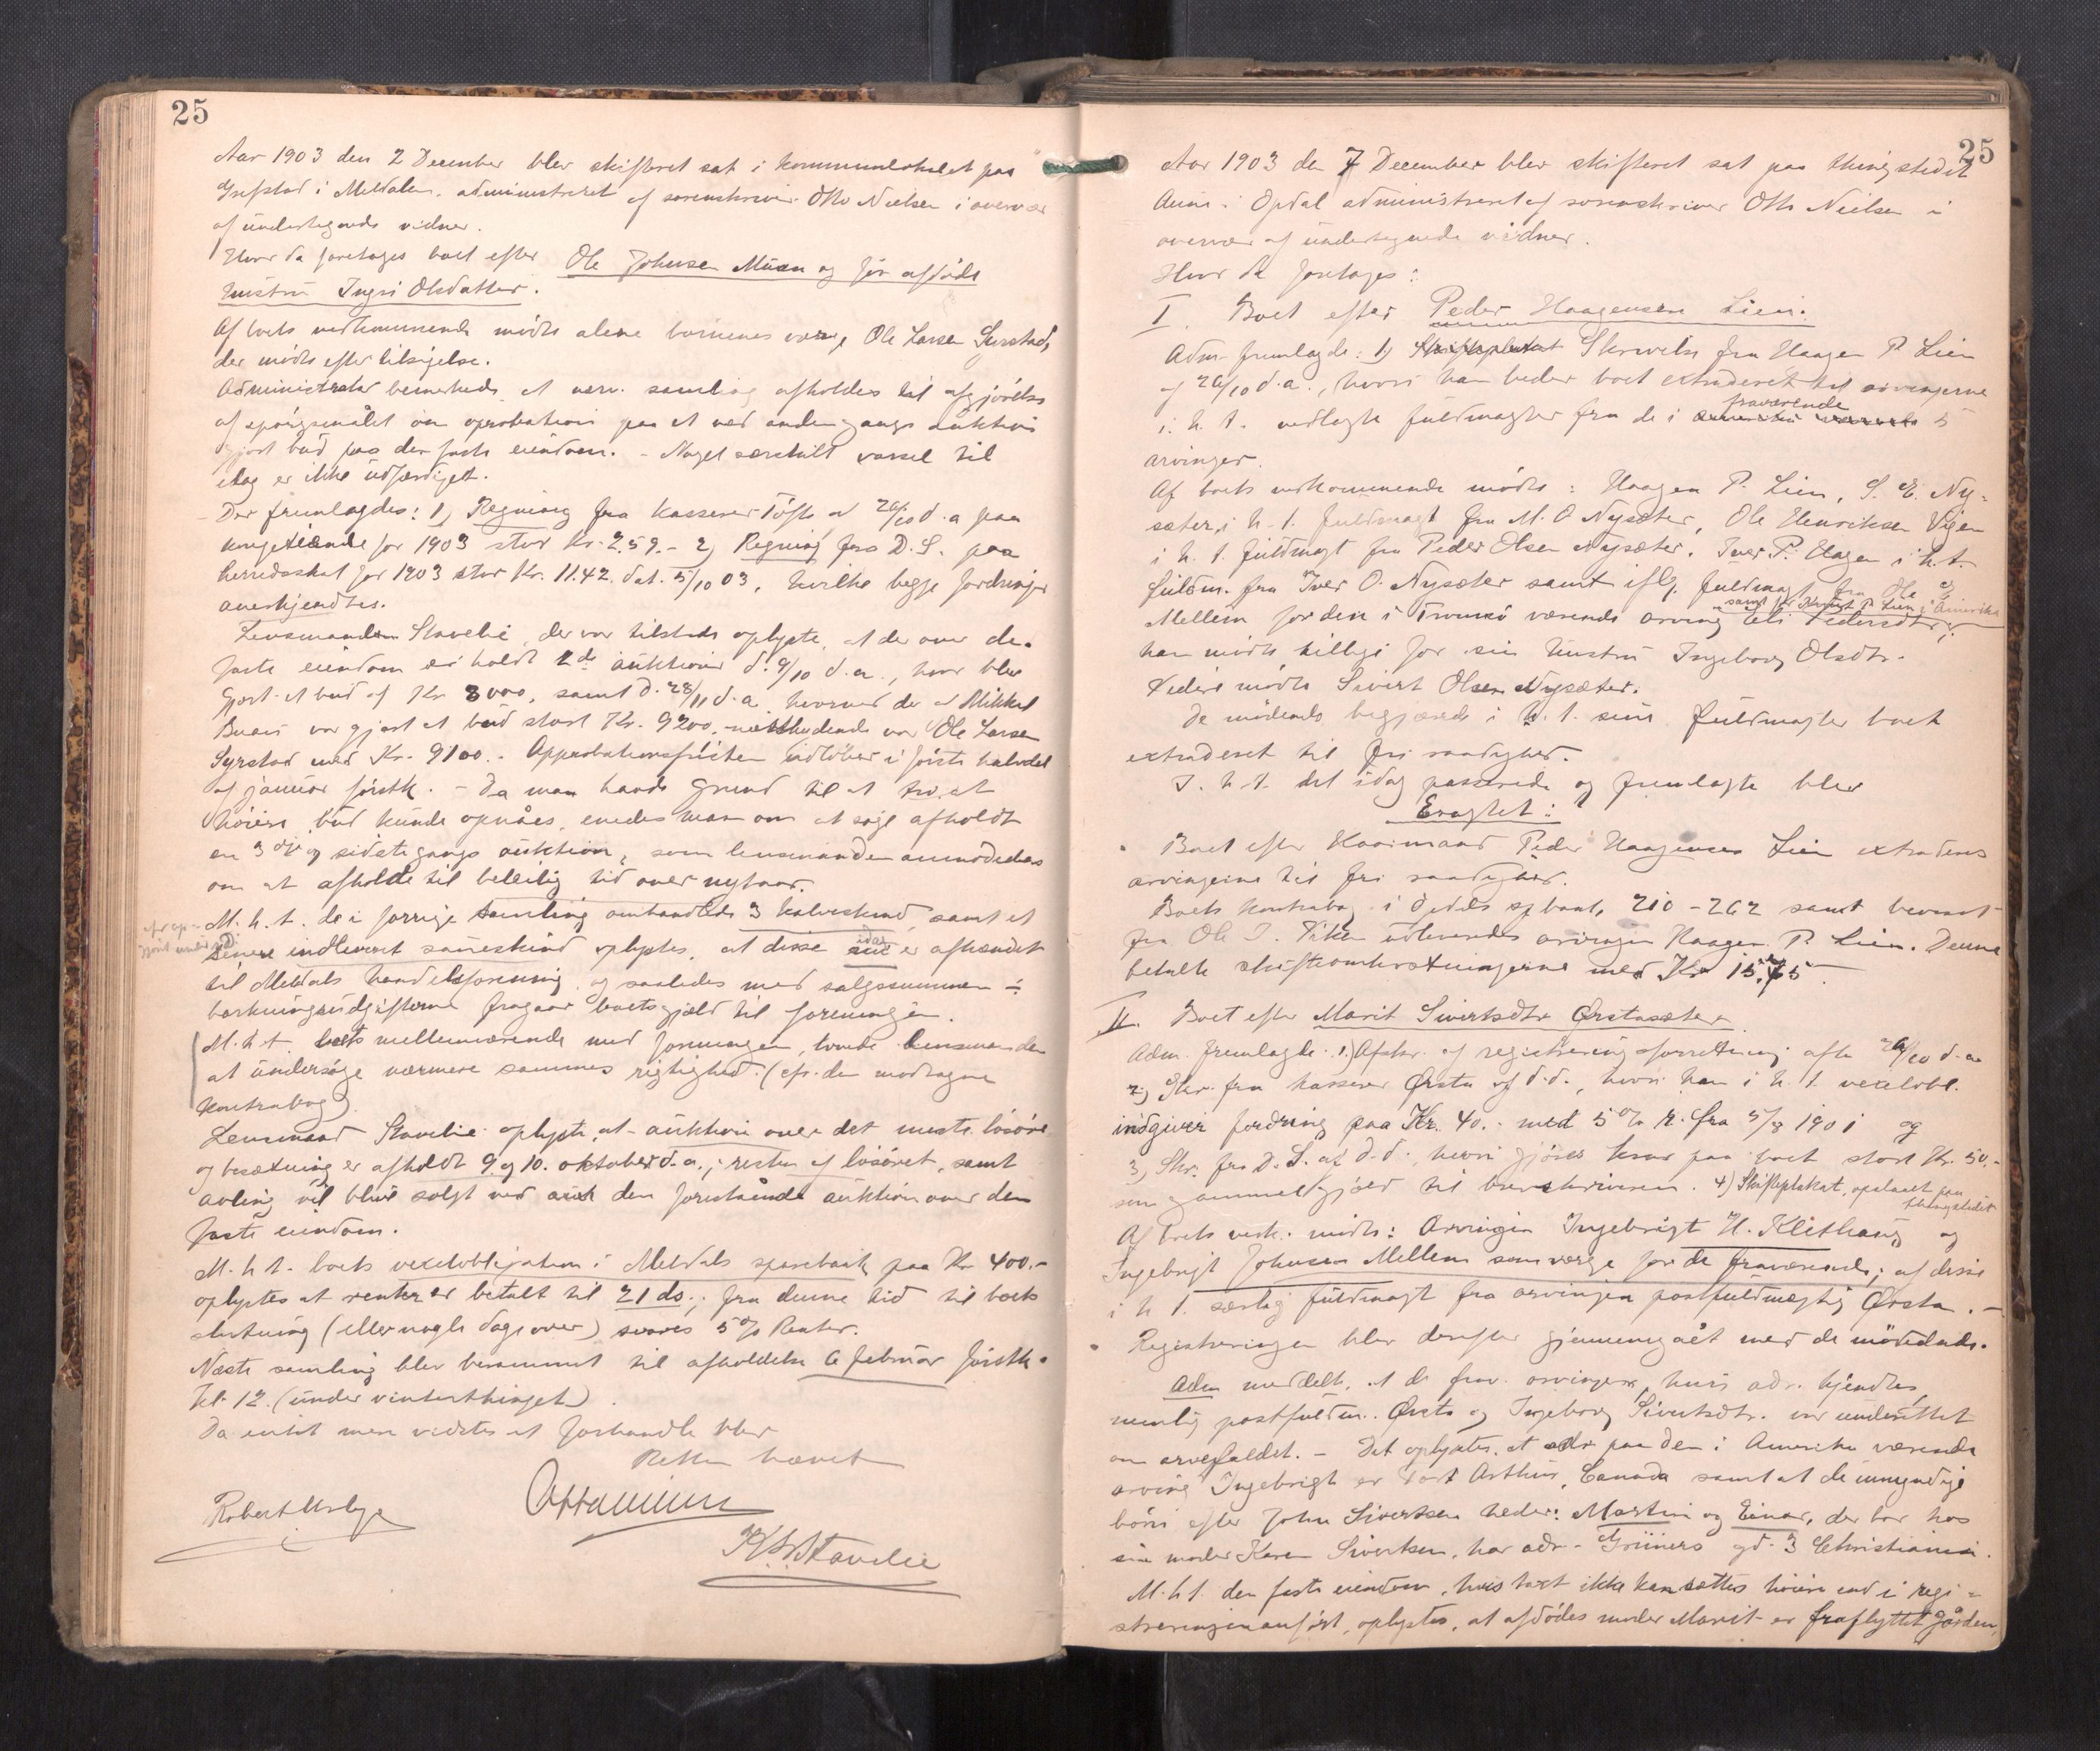 25
Aar 1903 den 2 December blev skifteret sat i kommunelokalet paa
Grefstad i Meldalen, administreret af sorenskriver Otto Nielsen i overvær
af undertegnede vidner.
Hvor da foretages boet efter Ole Johnsen Muan og før afdøde
hustru Ingri Olsdatter.
Af boets vedkommende mødte alene børnenes værge Ole Larsen Syrstad,
der mødte efter tilsigelse.
Administrator bemerkede at nærv. samling afholdes til afgjørelse
af spørgsmålet om aprobation paa et ved anden gangs auktion
gjort bud paa den faste eiendom. - Noget særskilt varsel til
idag er ikke udfærdiget.
Der fremlagdes: 1) Regning fra kasserer Tøfte af 26/10 d.a paa
for 1903 stor Kr. 2.59. - 2) Regning fra D.S. paa
herredsskat for 1903 stor Kr. 11.42. dat. 5/10 03, hvilke begge fordringer
anerkjendtes.
Lensmanden Stavelie, der var tilstede oplyste, at der over den
faste eiendom er holdt 2de auktioner d. 9/10 d.a., hvor blev
gjort et bud af Kr. 8000, samt d. 28/11 d.a hvorved der af Mikkel
var gjort et bud stort Kr. 9200, næstbydende var Ole Larsen
Syrstad med Kr. 9100. - Approbationsfristen udløber i første halvdel
af januar førstk. - Da man havde grund til at tro, at
høiere bud kunde opnåes, enedes man om at søge afholdt
en 3die og sidste gangs auktion, som lensmanden anmodedes
om at afholde til beleilig tid over nytaar.
M.h.t. de i forrige samling omhandlede 3 kalveskind, samt et
senere indleveret saueskind oplystes, at disse idag er afhændet
til Meldals handelsforening, og saaledes med salgssummen ÷
barkningsudgifterne fragaar boets gjæld til foreningen.
M.h.t. boets mellemværende med foreningen, lovede lensmanden
at undersøge nærmere sammes rigtighed. (cfr. den modtagne
kontrabog).
Lensmand Stavelie oplyste, at auktion over det meste løsøre
og besætning er afholdt 9 og 10. oktober d.a.; resten af løsøret, samt
avling vil blive solgt ved den forestående auktion over den
faste eiendom.
M.h.t. boets vexelobligation i Meldals sparebank paa Kr. 400.-
oplystes at renter er betalt til 21 ds.; fra denne tid til boets
slutning (eller nogle dage over) svares 5% Renter.
Næste samling blev berammet til afholdelse 6 februar førstk.
kl. 12. (under vinterthinget)
Da intet mere vidstes at forhandle blev
Retten hævet
Otto Nielsen
K Stavelie
25
Aar 1903 den 7 December blev skifteret sat paa thingstedet
Aune i Opdal administreret af sorenskriver Otto Nielsen i
overvær af undertegnede vidner.
Hvor da foretages:
I. Boet efter Peder Haagensen Lien.
Adm. fremlagde: 1) Skrivelse fra Haagen P. Lien
af 26/10 d.a., hvori han beder boet extraderet til arvingerne
i. h. t. vedlagte fuldmagter fra de i fraværende 5
arvinger.
Af boets vedkommende mødte: Haagen P. Lien, S. E. Ny-
sæter, i h.t. fuldmagt fra M. O Nysæter, Ole Henriksen Vigen
i h. t. fuldmagt fra Peder Olsen Nysæter, Iver P. Hagen i h.t.
fuldm. fra Iver O. Nysæter samt iflg. fuldmagt fra Ole
samt for Knut P. Lien i Amerika
Mellem for den i Tromsø værende arving Pedersdtr.;
han mødte tillige for sin hustru Ingeborg Olsdtr.
Videre mødte Sivert Olsen Nysæter.
De mødende begjærede i h. t. sine fuldmagter boet
extraderet til fri raadighed.
I. h. t. det idag passerede og fremlagte blev
Eragtet:
Boet efter Kaarmand Peder Haagensen Lien extraderes
arvingerne til fri raadighed.
Boets kontrabog i Opdals spbank, 210 - 262 samt bevis
fra Ole J. udleveredes arvingen Haagen P. Lien. Denne
betalte skifteomkostningerne med Kr 15,75
II. Boet efter Marit Sivertsdtr Ørstasæter
Adm. fremlagde: 1.) Afskr. af registreringsforretning afh. 26/10 d.a
2) Skr. fra kasserer Ørsta af d.d., hvori han i h. t. vexelobl.
indgiver fordring paa Kr. 40. - med 5% r. fra 5/8 1901 og
3) Skr. fra D.S. af d.d., hvori gjøres krav paa boet stort Kr. 50,-
som gammel gjæld til 4) Skifteplakat, opslaaet paa
thingstedet
Af boets vedk. mødte: Arvingen Ingebrigt H. Klethaug og
Ingebrigt Johnsen Mellem som værge for de fraværende; af disse
i h t. særlig fuldmagt fra arvingen postfuldmægtig Ørsta. -
Registreringen blev derefter gjennemgået med de mødende.
Adm meddelte, at de frav. arvinger, hvis adr. kjendtes,
nemlig postfuldm. Ørsta og Ingeborg Sivertsdtr. var underrettet
om arvefaldet. - Det oplystes, at adr paa den i Amerika værende
arving Ingebrigt er Port Arthur, Canada samt at de umyndige
børn efter John Sivertsen heder: Martin og Einar, der bor hos
sin moder Karen Sivertsen, har adr. Grüners gd. 3 Christiania.
M. h t. den faste eiendom, hvis taxt ikke kan sættes høiere end i regi-
streringen anført, oplystes, at afdødes moder Marit er fraflyttet gården,